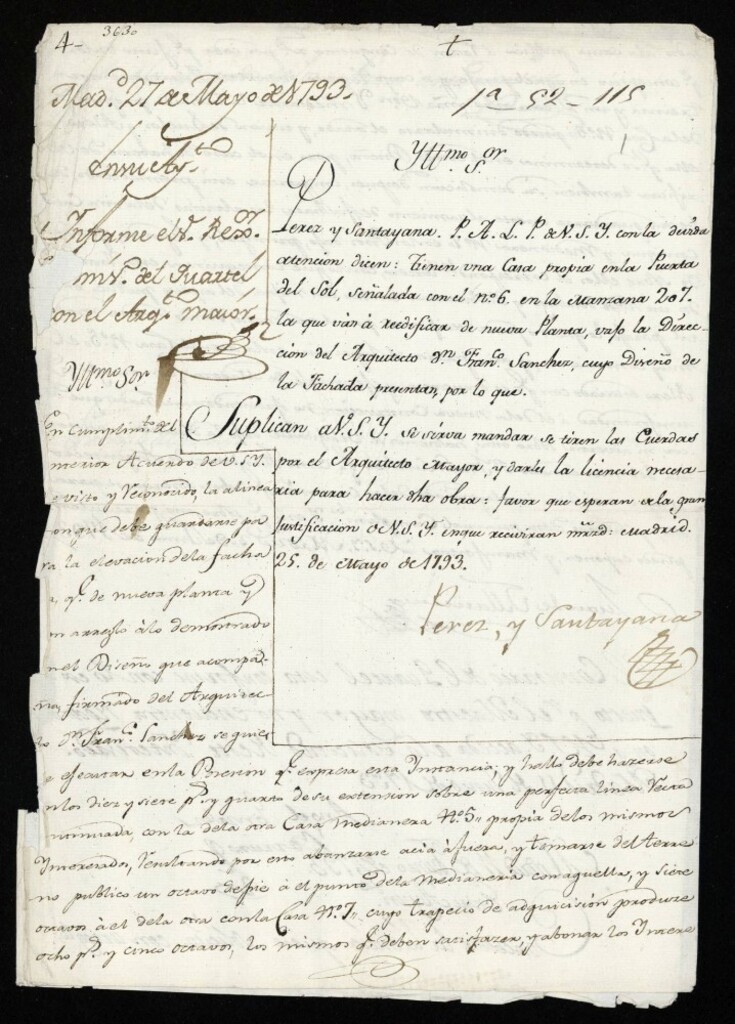 4-
3630
+
Mad.d 27 de Mayo de 1793.
1ª - 52 - 115
1
En su Ay.to
Informe el S.r Rex.or
m.o del Quartel
con el Arq.to maior.
Yttmo Sor
Yttmo Sr.
Perez y Santayana. P. A. L. P. de V. S. Y. con la devida
atencion dicen: Tienen una Casa propia en la Puerta
del Sol, señalada con el nº 6. en la Manzana 207.
la que ván à redificar de nueva Planta, vajo la Direc-
cion del Arquitecto d.n Fran.co Sanchez, cuyo Diseño de
la Fachada presentan, por lo que.
Suplican a V. S. Y. se sirva mandar se tiren las Cuerdas
por el Arquitecto Mayor, y darles la licencia necesa-
ria para hacer dha obra: favor que esperan de la gran
justificacion de V. S. Y. en que reciviran mrd: Madrid.
25. de Mayo de 1793.
Perez, y Santayana
En cumplim.to del
nterior Acuerdo de V. S. Y.
e visto y reconocido, la alinea
on que debe guardarse pa
ra la elevacion de la facha
a, q.e de nueva planta y
n arreglo à lo demostrado
n el Diseño que acompa-
ña, firmado del Arquitec-
to D.n Fran.co Sanchez se quier
e egecutar en la Posesion q.e expresa esta Instancia; y hallo debe hacerse
n los diez y siete p.s y quarto de su extension sobre una perfecta linea recta
continuada, con la de la otra Casa Medianera Nº 5,, propia de los mismos
Interesados, resultando por esto abanzarse acia à fuera, y tomarse del terre
no publico un octavo de pie à el punto de la medianeria con aquella, y siete
octavos à el de la otra con la Casa Nº 7,, cuyo trapecio de adquisición produze
ocho p.s y cinco octavos, los mismos q.e deben satisfazer, y abonar los Intere